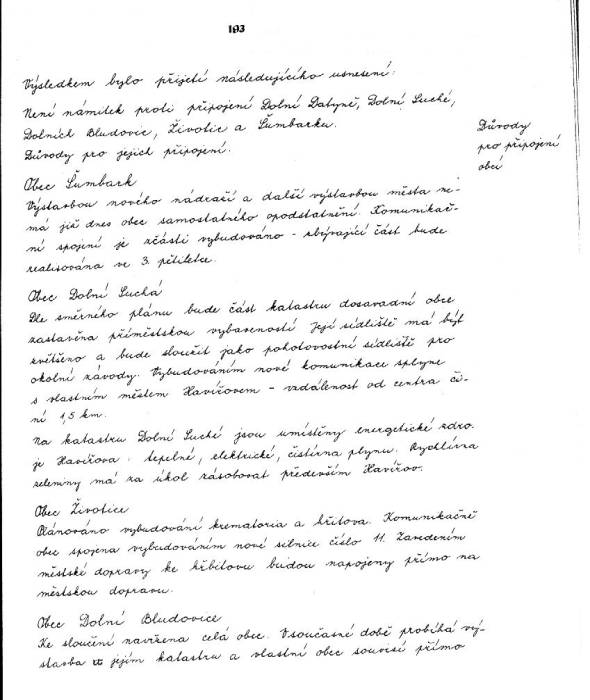 193
Výsledkem bylo přijetí následujícího usnesení:
Není námitek proti připojení Dolní Datyně, Dolní Suché,
Dolních Bludovic, Životic a Šumbarku.
Důvody pro jejich připojení.
Důvody
pro připojení
obcí
Obec Šumbark
Výstavbou nového nádraží a další výstavbou města ne-
má již dnes obec samostatného opodstatnění. Komunikač-
ní spojení je zčásti vybudováno - zbývající část bude
realisována ve 3. pětiletce.
Obec Dolní Suchá
Dle směrného plánu bude část katastru dosavadní obce
zastavěna příměstskou vybaveností. Její sídliště má být
zvětšeno a bude sloužit jako pohotovostní sídliště pro
okolní závody. Vybudováním nové komunikace splyne
s vlastním městem Havířovem - vzdálenost od centra či-
ní 1,5 km.
Na katastru Dolní Suché jsou umístěny energetické zdro-
je Havířova - tepelné, elektrické, čistírna plynu. Rychlírna
zeleniny má za úkol zásobovat především Havířov.
Obec Životice
Plánováno vybudování krematoria a hřbitova. Komunikačně
obec spojena vybudováním nové silnice číslo 11. Zavedením
městské dopravy ke hřbitovu budou napojeny přímo na
městskou dopravu.
Obec Dolní Bludovice
Ke sloučení navržena celá obec. V současné době probíhá vý-
stavba na jejím katastru a vlastní obec souvisí přímo